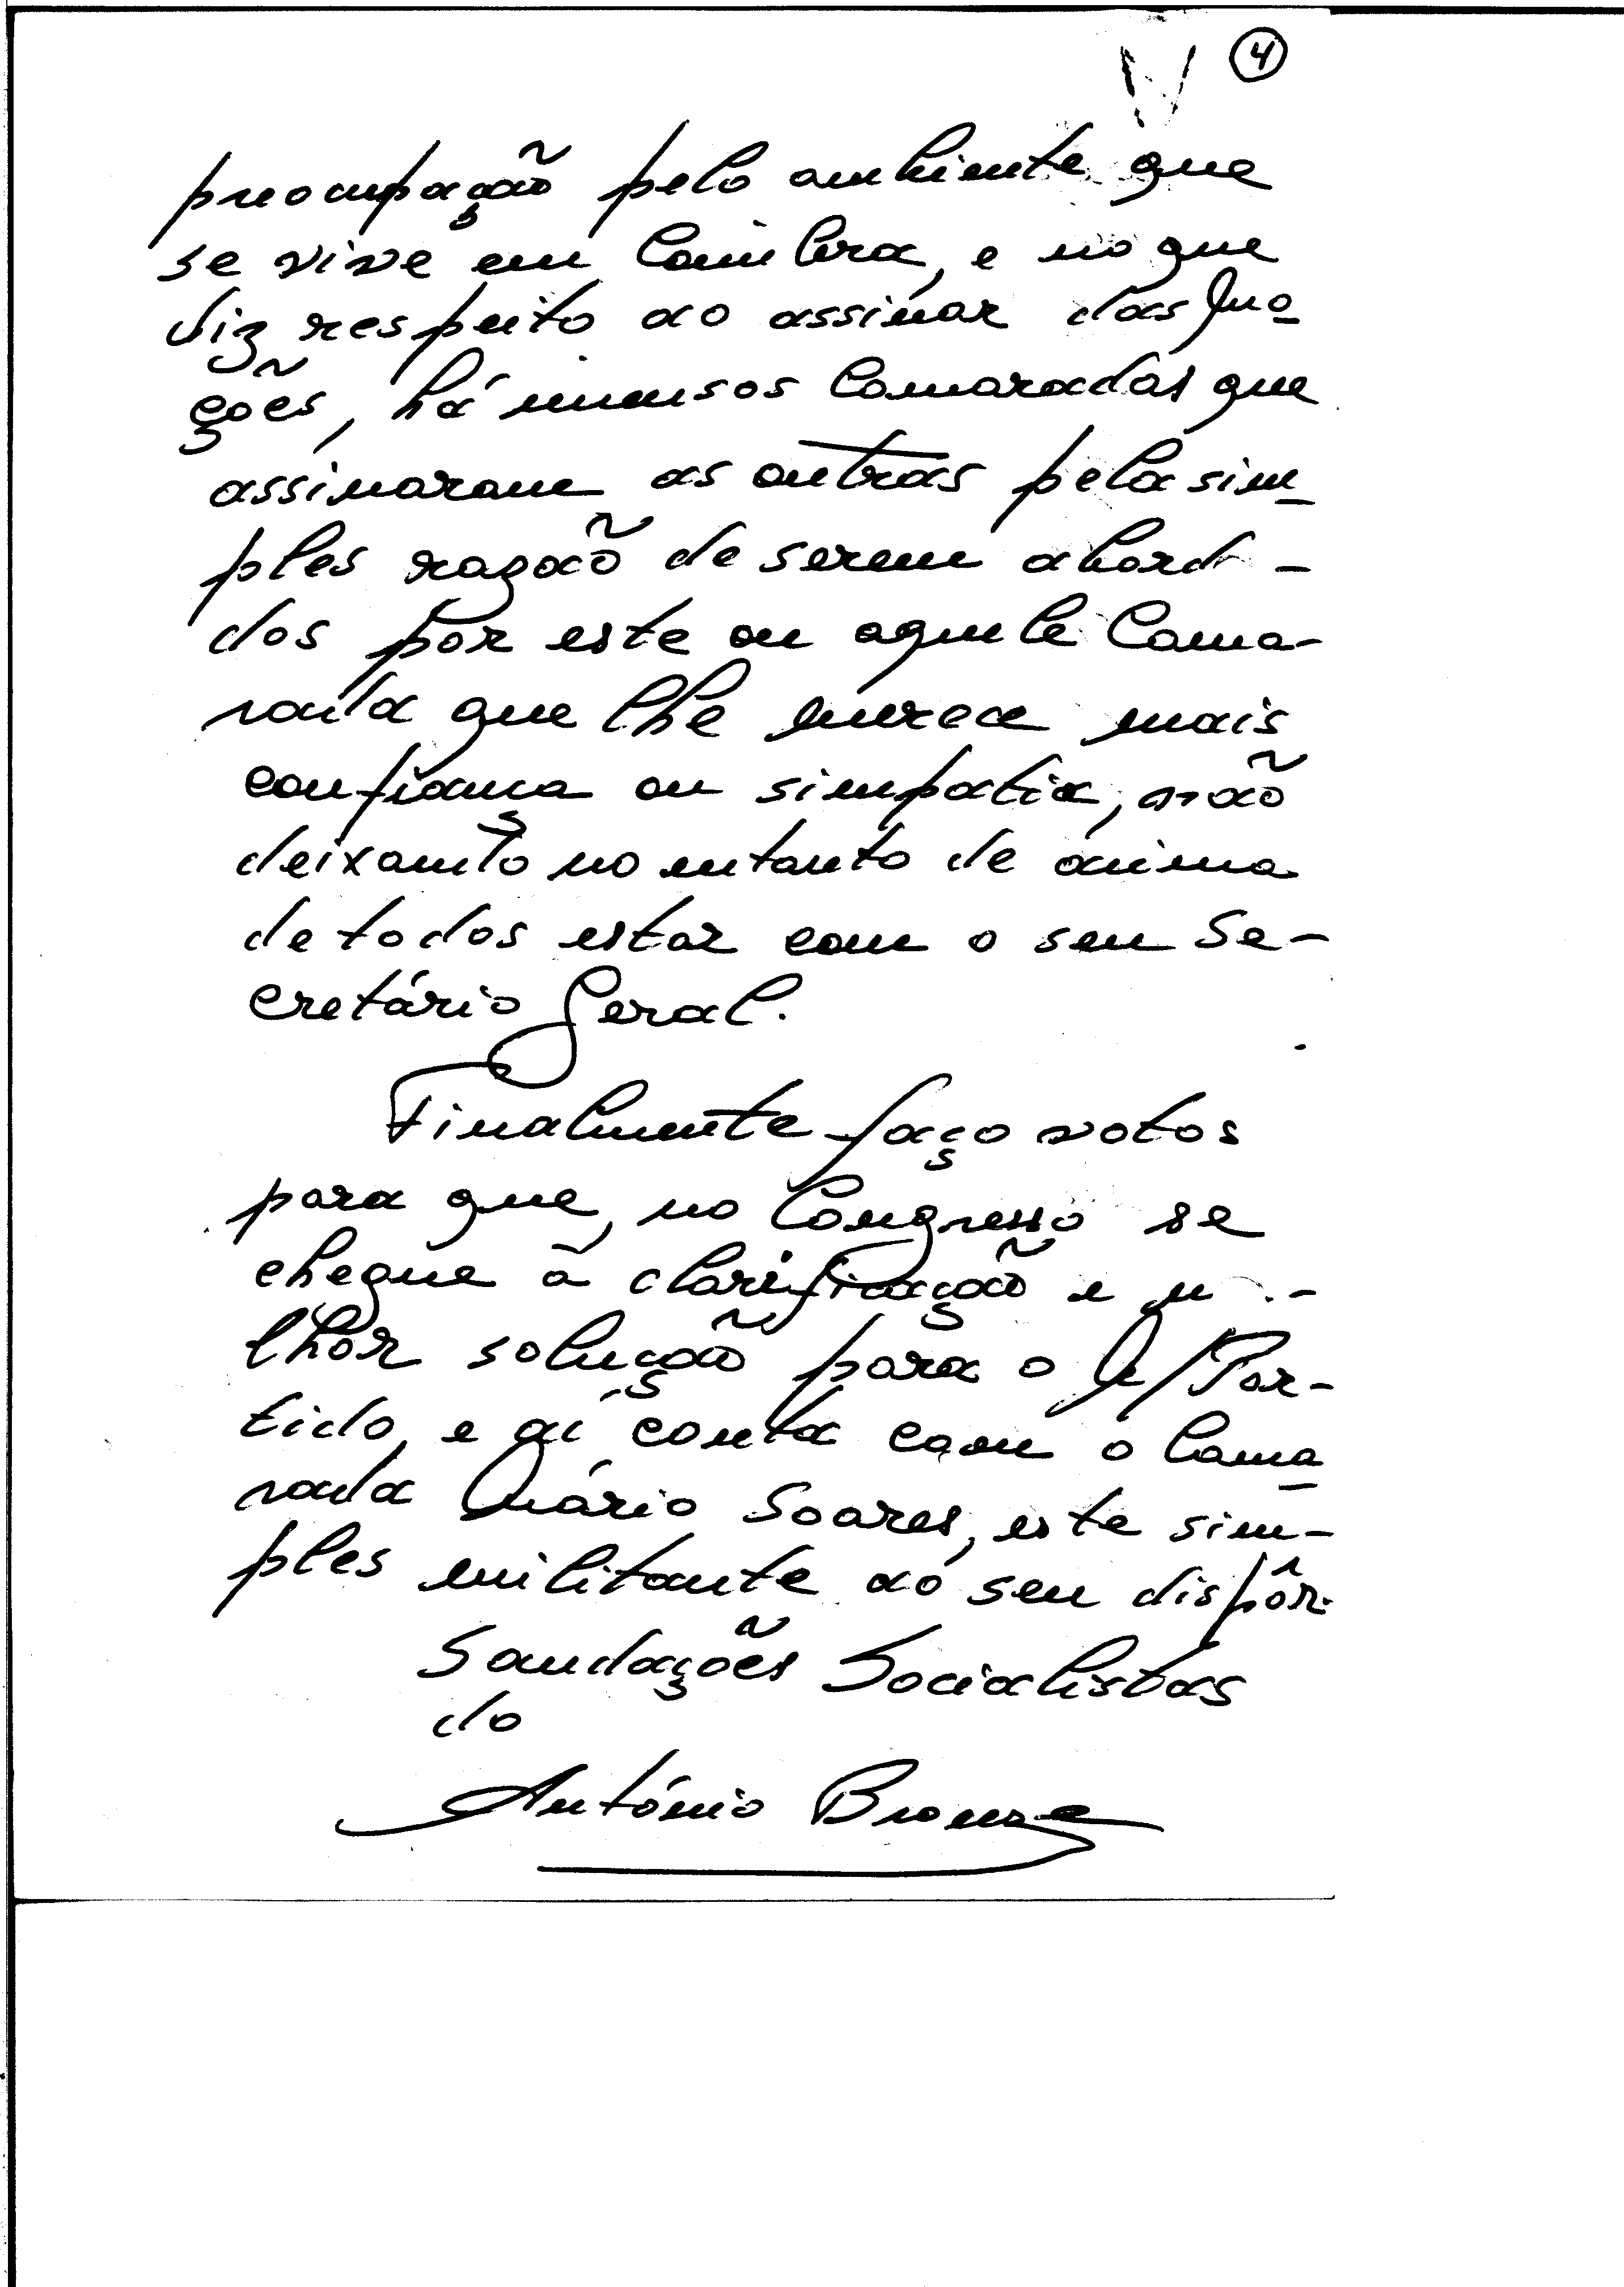 4
preocupação pelo ambiente que
se vive em Coimbra, e no que
diz respeito ao assinar das Mo-
ções, há imensos Camaradas que
assinaram as outras pela sim-
ples razão de serem aborda-
dos por este ou aquele Cama-
rada que lhe merece mais
confiança ou simpatia, não
deixando no entanto de acima
de todos estar com o seu Se-
cretário Geral.
Finalmente faço votos
para que, no Congresso se
chegue à clarificação e m -
lhor solução para o N/Par-
tido, e aí conta com o Cama-
rada Mário Soares, este sim-
ples militante ao seu dispôr.
Saudações Socialistas
do
António